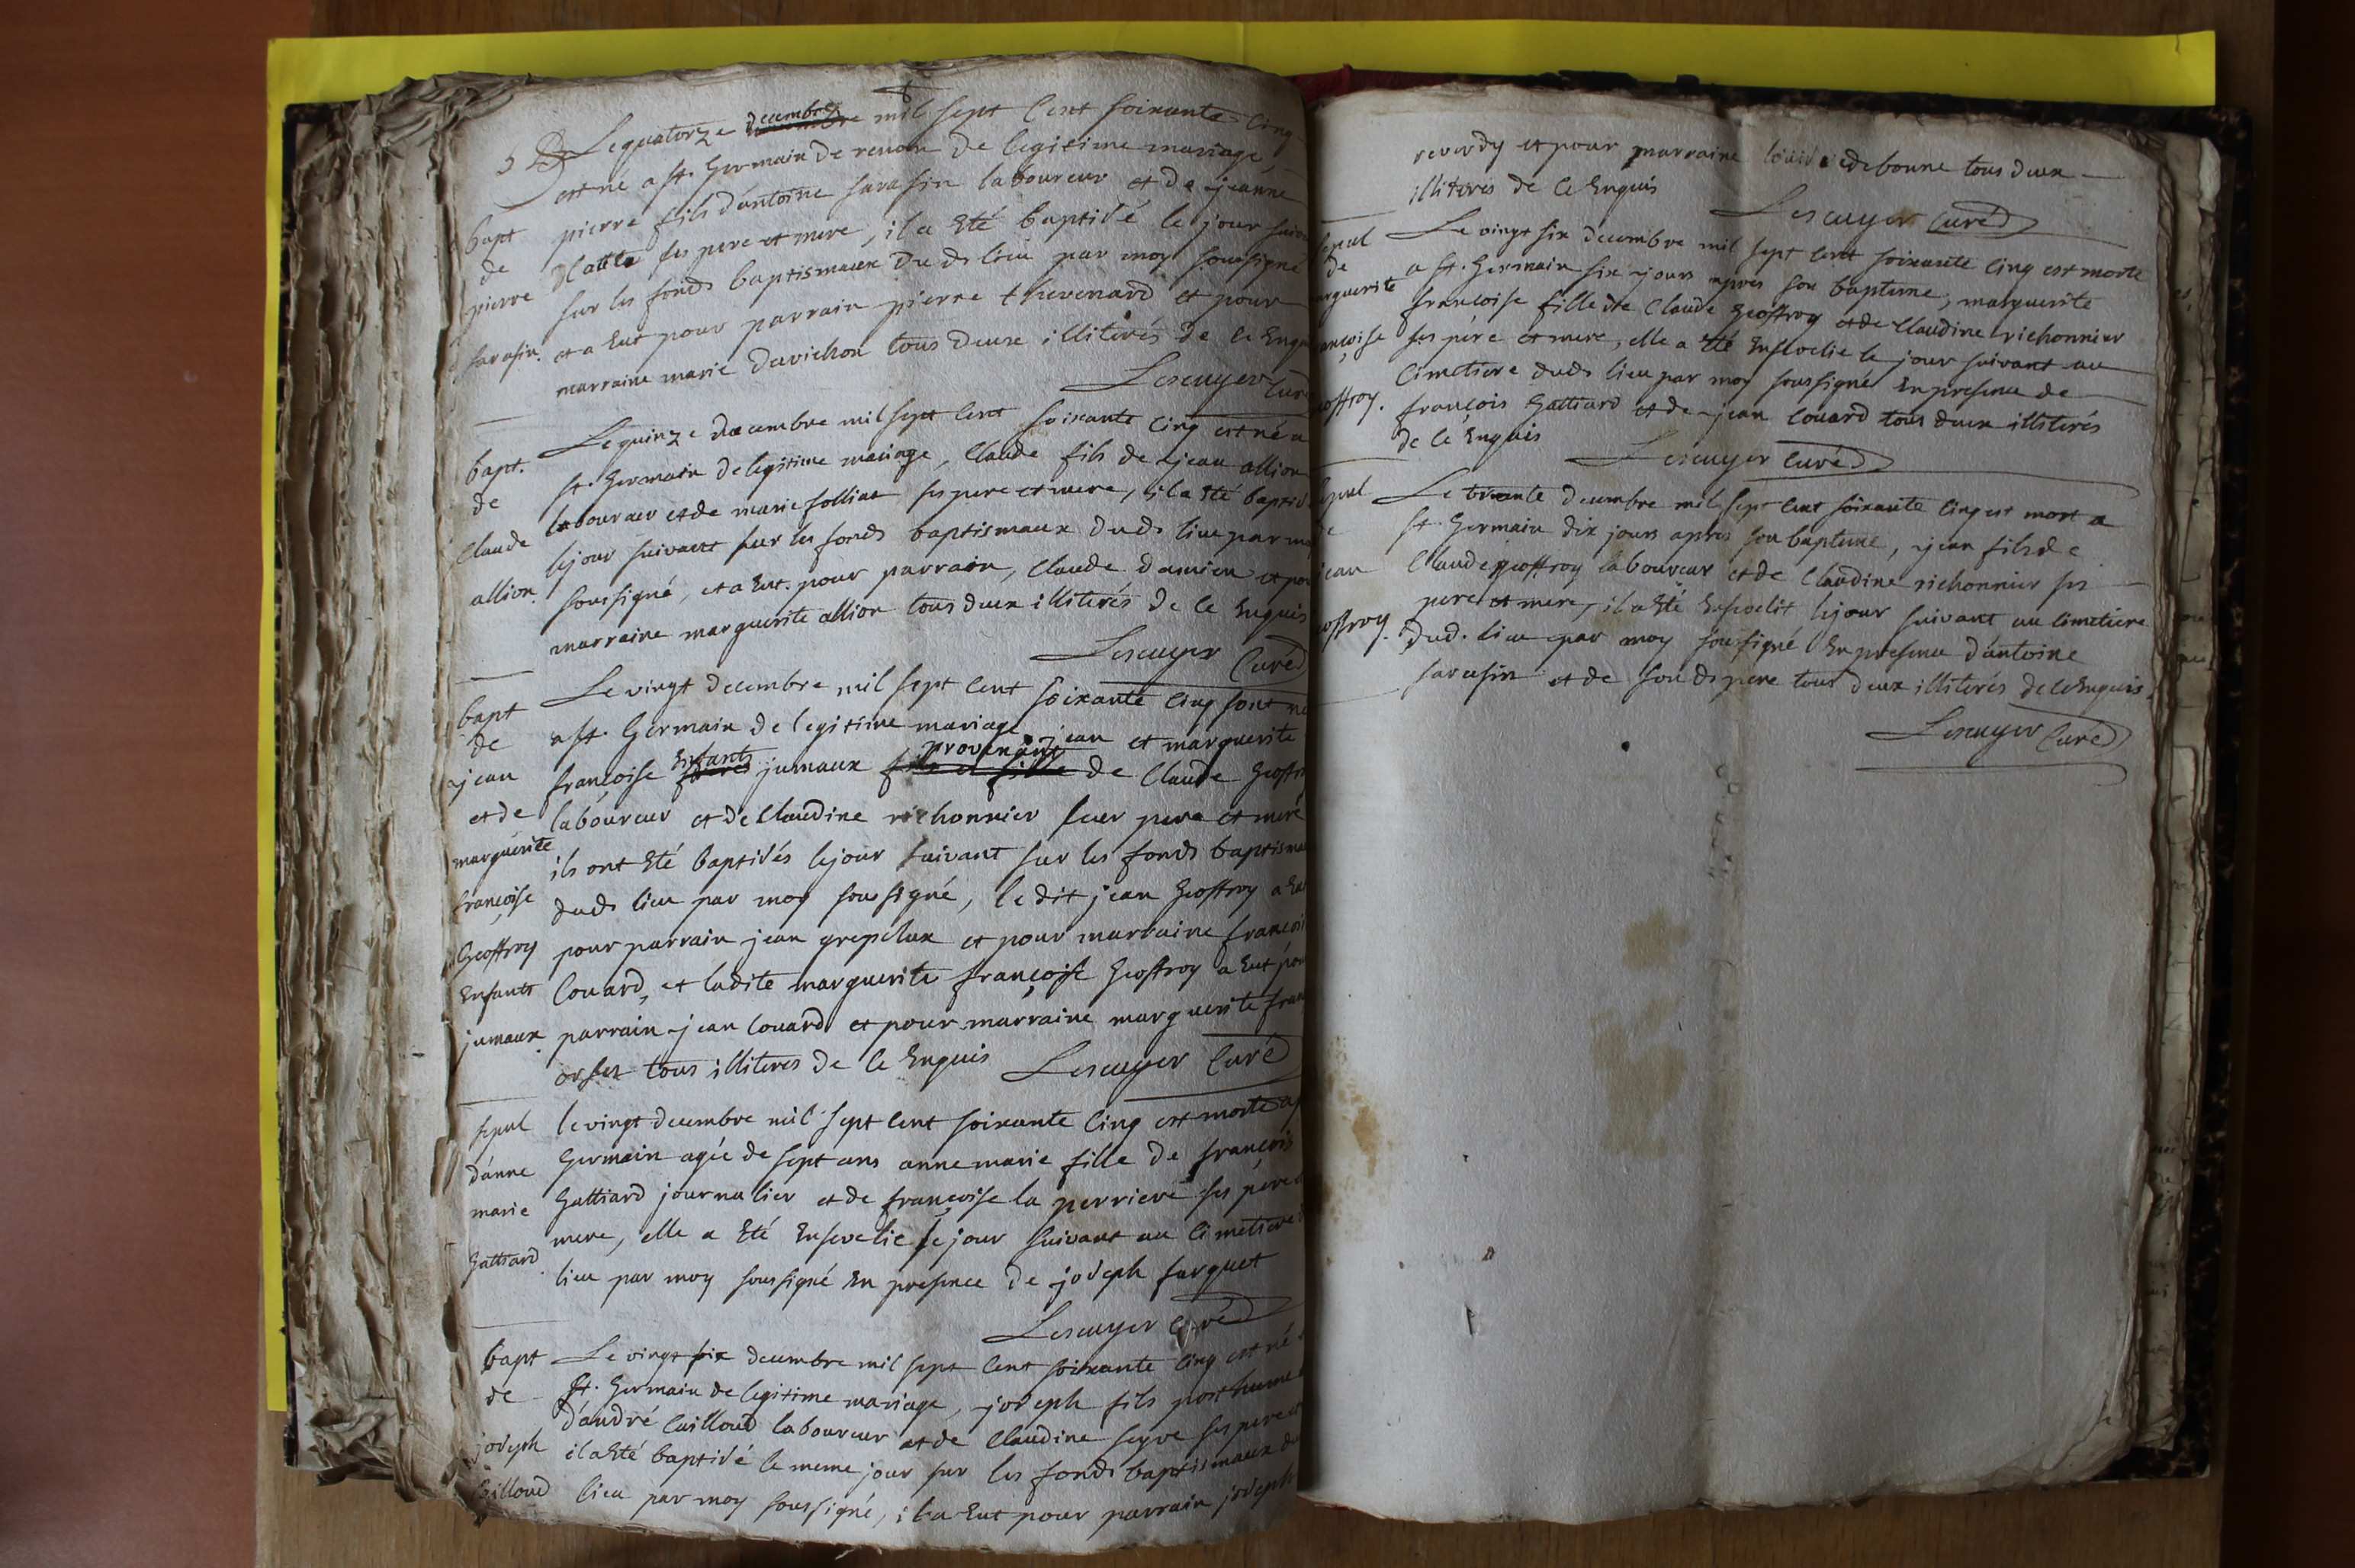 Le quatorze decembre mil sept cent soixante cinq
est né a st. Germain de renom de legitime mariage
pierre fils d'antoine sarasin laboureur et de jeanne
ses pere et mere, il a Eté baptisé le jour
sur les fonds baptismaux dud. lieu par moy soussigné
et a Eut pour parrain pierre thevenard et pour
marraine marie duvichon tous deux illiterés de ce
Lescuyer Curé
bapt
de
pierre
sarasin.
Le quinze decembre mil sept cent soixante cinq est né a
st. Germain de legitime mariage, Claude fils de jean allion
laboureur et de marie folliat ses pere et mere, il a Eté
le jour suivant sur les fonds baptismaux dud. lieu par
soussigné, et a Eut pour parrain, Claude damieu et
marraine marguerite allion tous deux illiterés de ce Enquis
Lescuyer Curé
bapt.
de
Claude
allion.
Le vingt decembre mil sept cent soixante cinq sont
a st. Germain de legitime mariage jean et marguerite
françoise Enfants jumaux provenant de Claude
laboureur et de Claudine richonnier leur pere et mere
ils ont Eté baptisés le jour suivant sur les fonds
dud. lieu par moy soussigné, le dit jean Geoffroy a
pour parrain jean grepelux et pour marraine
Couard, et ladite marguerite françoise Geoffroy a Eut
parrain jean Couard et pour marraine marguerite
orset tous illiteres de ce Enquis Lescuyer Curé
bapt
de
jean
et de
marguerite
françoise
Geoffroy
Enfants
jumaux
le vingt decembre mil sept cent soixante cinq est morte a
Germain agée de sept ans anne marie fille de françois
Galtiard journalier et de françoise la perriere ses pere
mere, elle a Eté Ensevelie le jour suivant au Cimetiere
lieu par moy soussigné En presence de joseph farguet
Lescuyer Curé
sepul
d'anne
marie
Galtiard
Le vingt six decembre mil sept cent soixante cinq est né
st. Germain de legitime mariage, joseph fils posthume
d'andré Cailloud laboureur et de Claudine seyve ses pere et
il a Eté baptisé le meme jour sur les fonds baptismaux
lieu par moy soussigné, il a Eut pour parrain joseph
bapt
de
joseph
reverdy et pour marraine debonne tous deux
illiteres de ce Enquis
Lescuyer Curé
Le vingt six decembre mil sept cent soixante cinq est morte
a st. Germain six jours apres son bapteme, marguerite
francoise fille de Claude Geoffroy et de Claudine richonnier
ses pere et mere, elle a Eté Ensevelie le jour suivant au
Cimetiere dud. lieu par moy soussigné En presence de
françois Galtiard et de jean Couard tous deux illiterés
de ce Enquis
Lescuyer Curé
Le trente decembre mil sept cent soixante cinq est mort a
st. Germain dix jours apres son bapteme, jean fils de
Claude geoffroy laboureur et de Claudine richonnier ses
pere et mere, il a Eté Ensevelit le jour suivant au Cimetiere
dud. lieu par moy soussigné En presence d'antoine
sarasin et de son d. pere tous deux illiterés de ce Enquis.
Lescuyer Curé